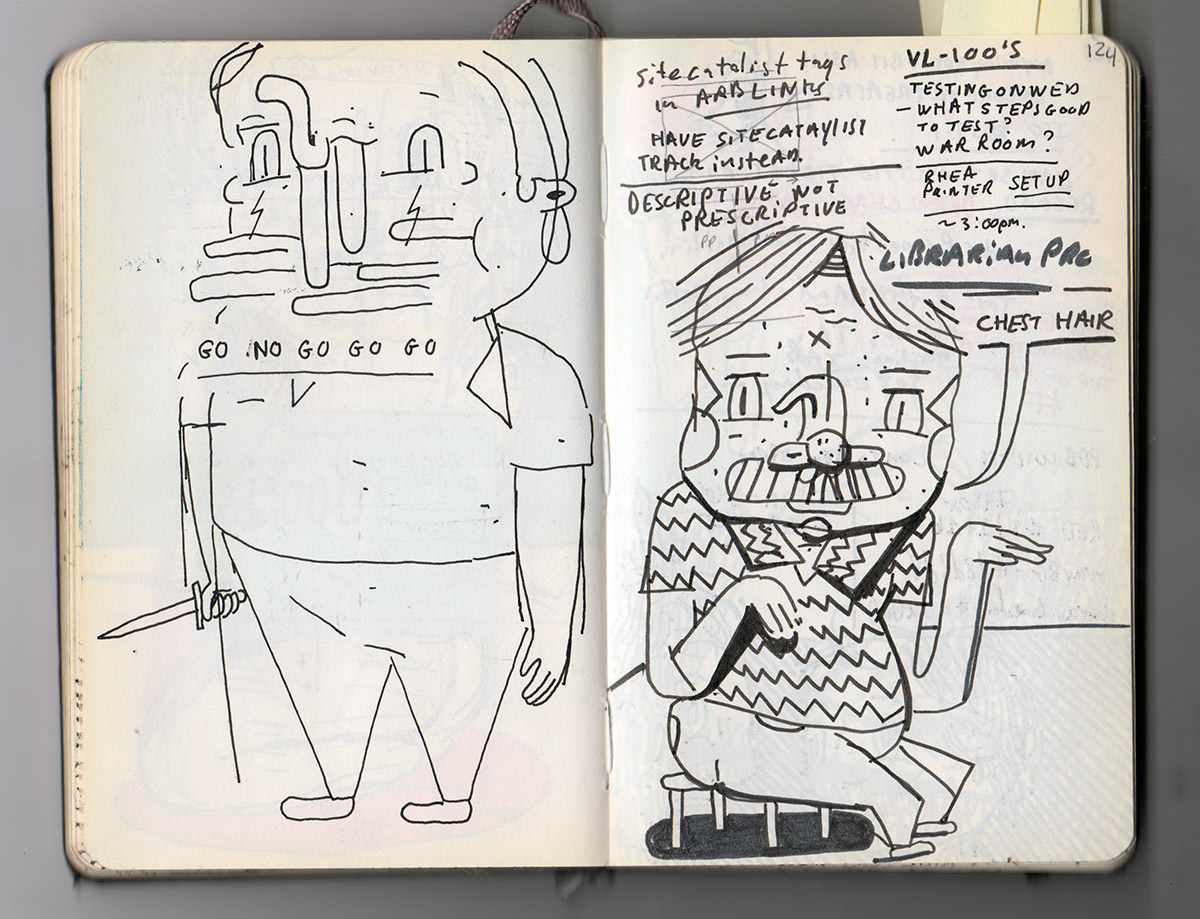 GO NO GO GO GO
sitecatalist tags
in ARBLINKS
HAVE SITECATAYLIST
TRACK instead.
DESCRIPTIVE NOT
PRESCRIPTIVE
PP.
VL-100'S
124
TESTING ON WED
- WHAT STEPS GOOD
TO TEST?
WAR ROOM?
RHEA
PRINTER SET UP
~ 3:00pm.
LIBRARIAN PRE
CHEST HAIR